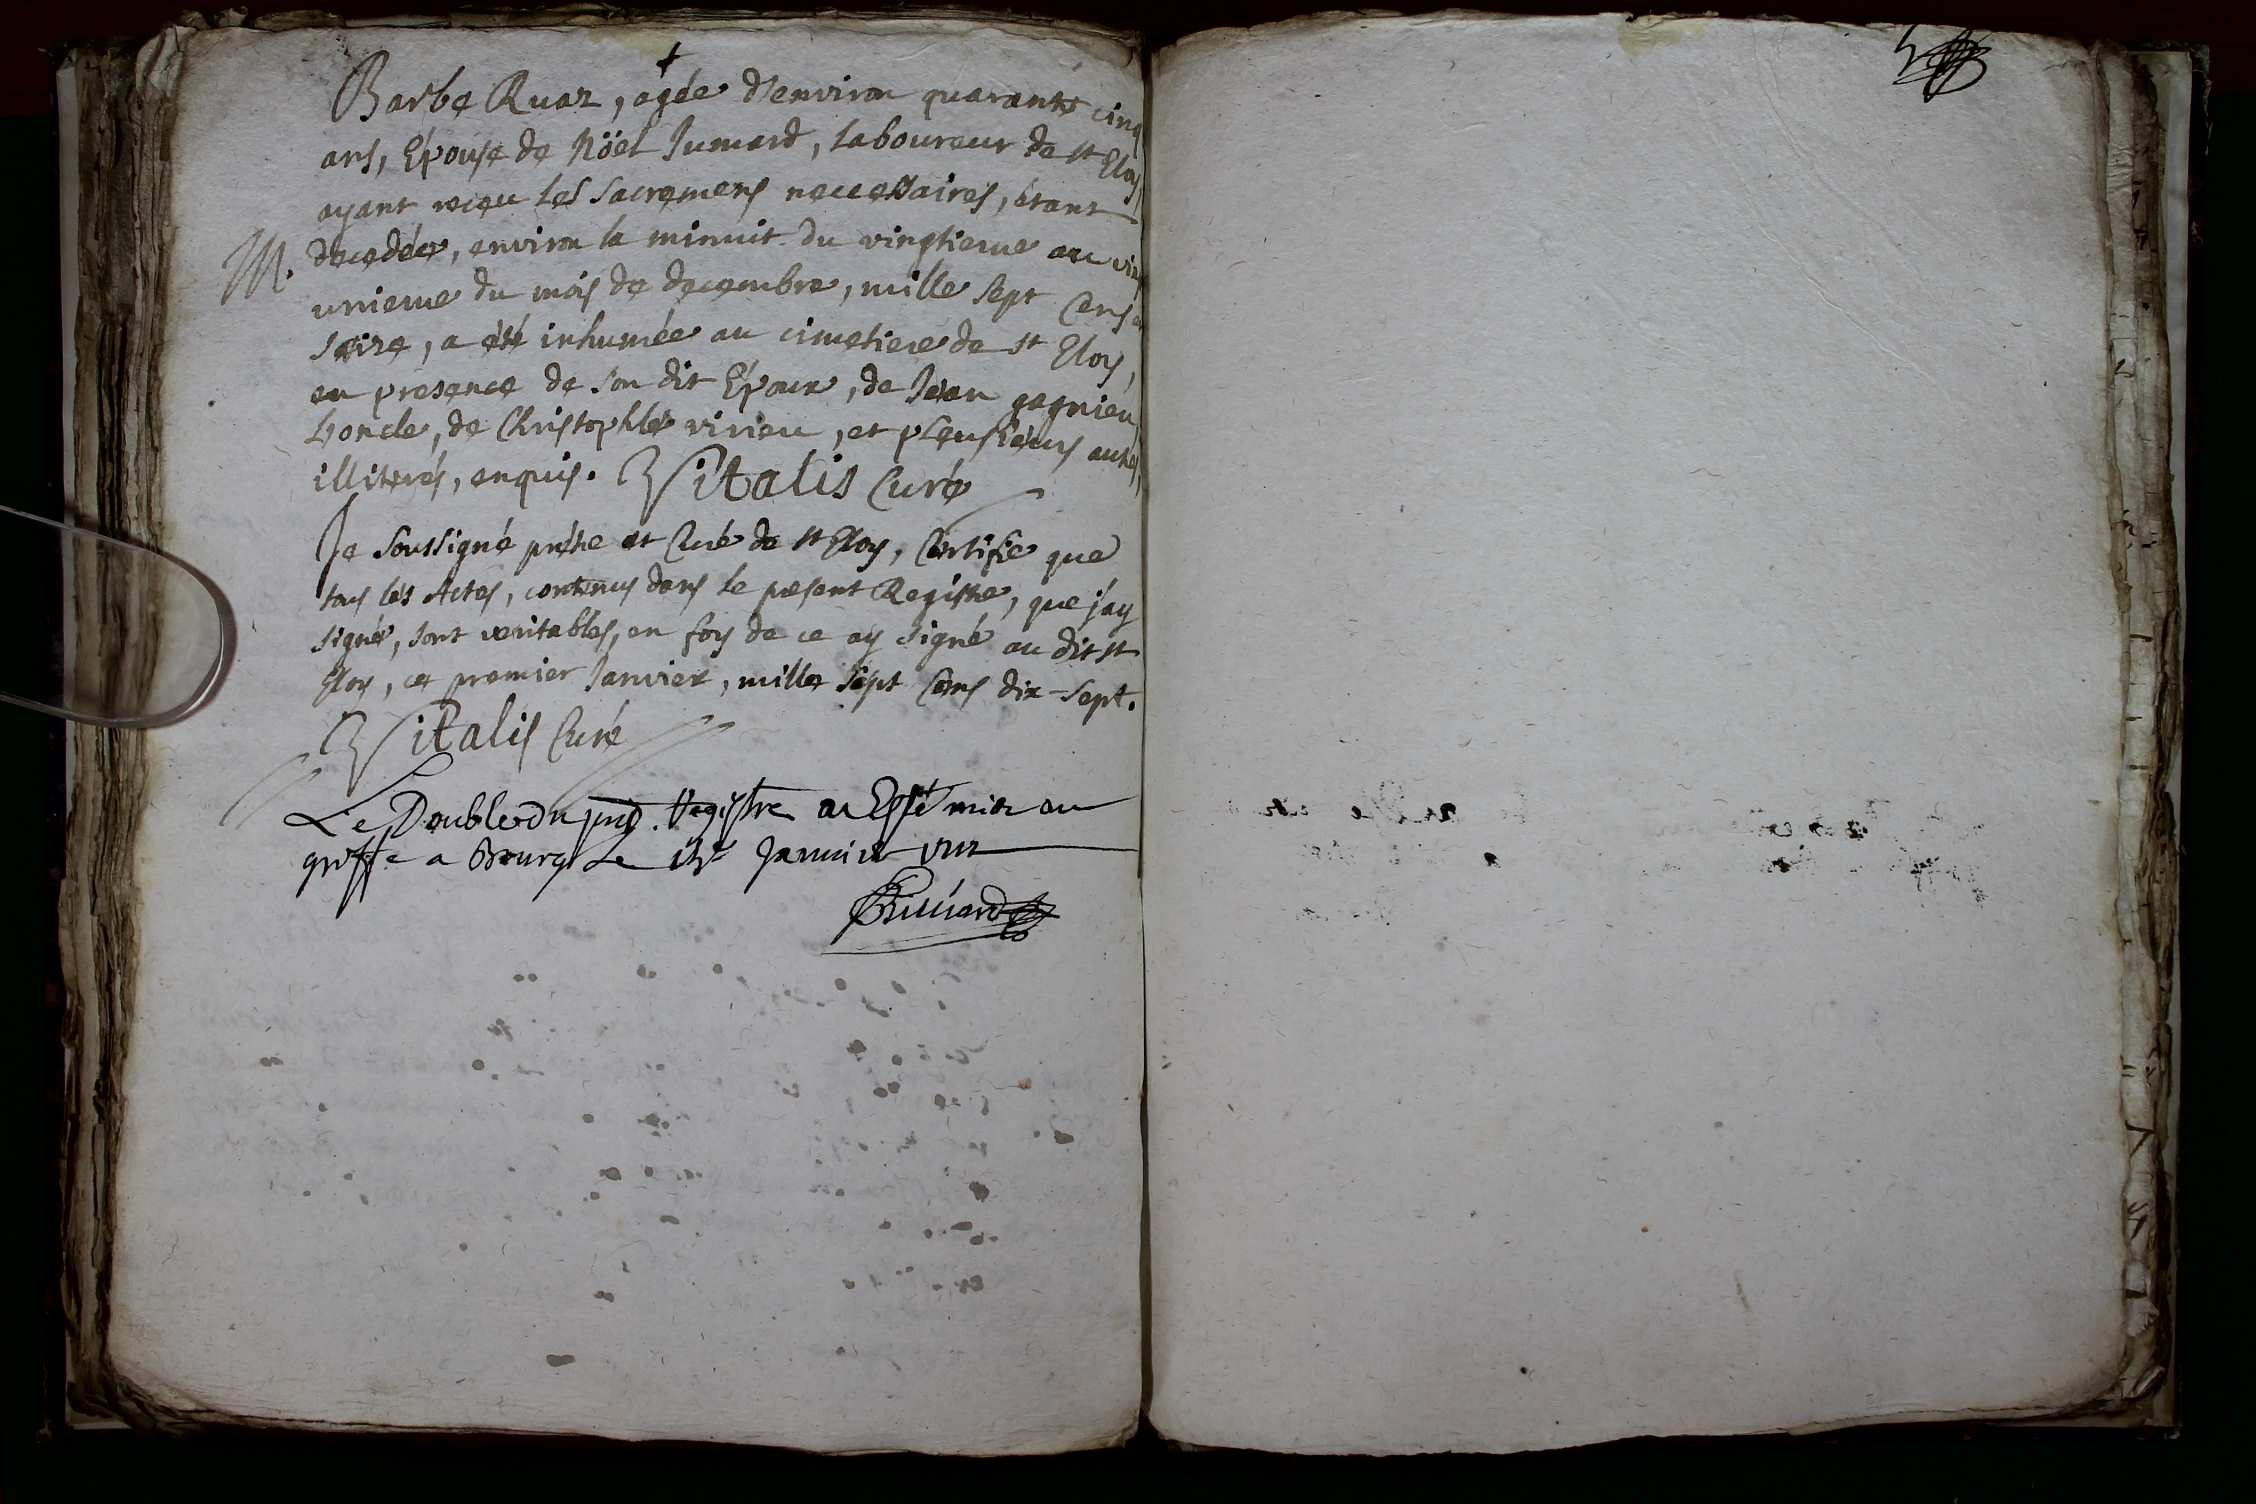 Barbe Ruaz, agée d'environ quarante cinq
ans, Epouse de Nöel Jumard, laboureur de st Eloy
ayant reçeu les sacremens necessaires, étant
M. decedée, environ la minuit du vingtieme au vingt
unieme du mois de decembre, mille sept cens
seize, a été inhumée au cimetiere de st Eloy,
en presence de son dit Epoux, de Jean gagnieu
boncle, de Christophle virieu, et pleusieurs autres,
illiterés, enquis. Vitalis Curé
Je soussigné prétre et Curé de st Eloy, Certifie que
tous les Actes, contenus dans le present Registre, que j'ay
signés, sont veritables, en foy de ce ay signé au dit st
Eloy, ce premier Janvier, mille sept cens dix-sept.
Vitalis Curé
Le Double du pnt Registre a Esté mis au
greffe a Bourg le Janvier